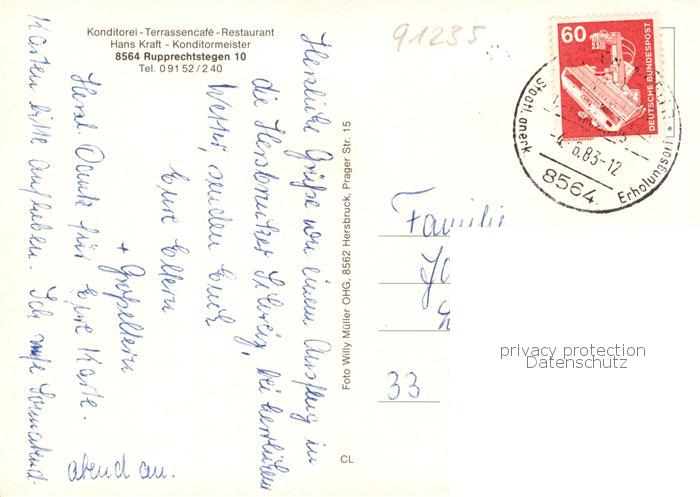 Konditorei - Terrassencafé - Restaurant
Hans Kraft - Konditormeister
8564 Rupprechtstegen 10
Tel. 0 91 52 / 2 40
91235
60
DEUTSCHE BUNDESPOST
Staatl. anerk.
Erholungsort
6.83-12
8564
Herzliche Grüße von einem Ausflug in
die Hersbrucker Schweiz, bei herrlichem
Wetter, senden Euch
Eure Eltern
+ Großeltern
Herzl. Dank für Eure Karte.
Karten bitte aufheben. Ich rufe Sonnabend
abend an.
Foto Willy Müller OHG, 8562 Hersbruck, Prager Str. 15
CL
Familie
33
privacy protection
Datenschutz